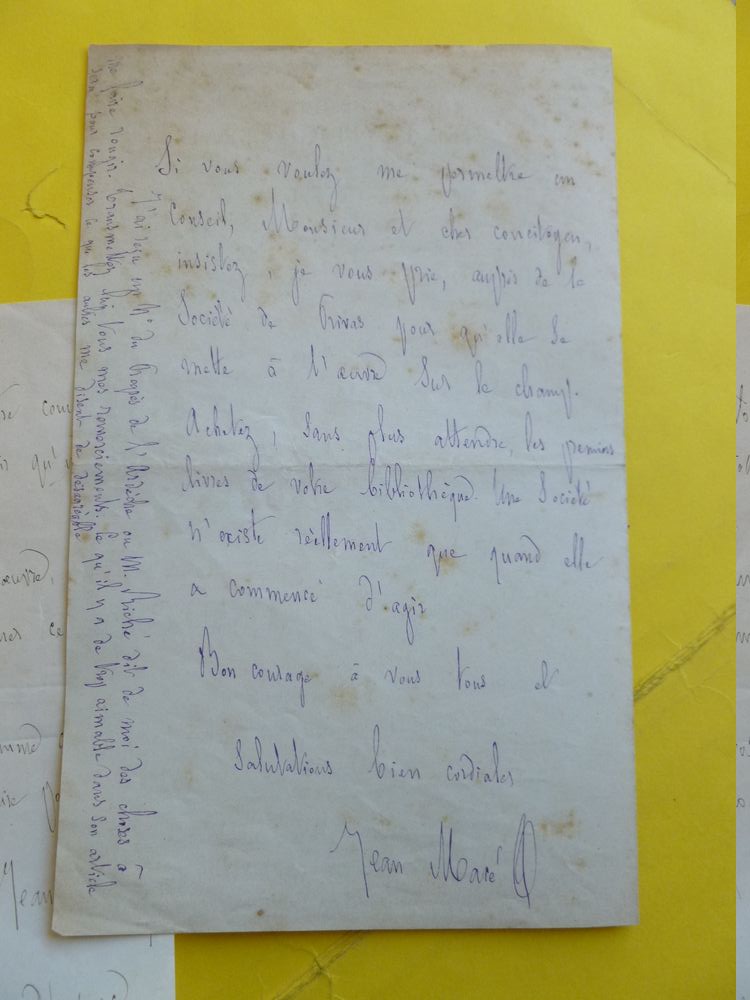 Si vous voulez me permettre un
Conseil, Monsieur et cher concitoyen,
insistez, je vous prie, auprès de la
Société de Privas pour qu'elle se
mette à l'œuvre sur le champ.
Achetez, sans plus attendre, les premiers
livres de votre bibliothèque. Une Société
n'existe réellement que quand elle
a commencé d'agir
Bon courage à vous tous et
Salutations bien cordiales
Jean Macé
J'ai reçu un N° du Progrès de l'Ardèche ou M. Riché dit de moi des choses à
me faire rougir. Transmettez lui tous mes remerciements. Ce qu'il y a de trop aimable dans son article
sera pour compenser ce que les autres me disent de désagréable